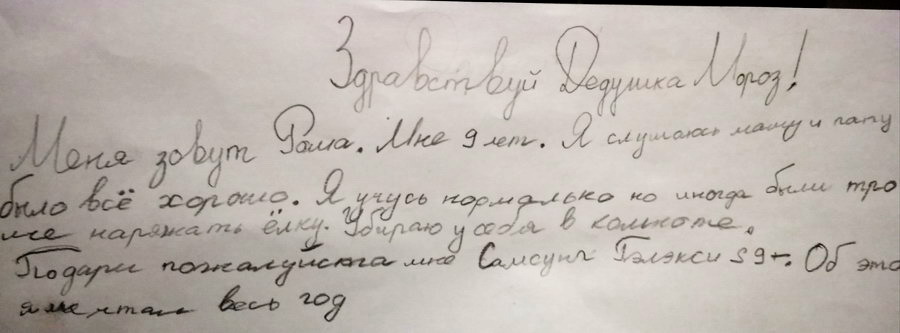 Здравствуй Дедушка Мороз!
Меня зовут Рома. Мне 9 лет. Я слушаюсь маму и папу
было всё хорошо. Я учусь нормалько но иногда были тро
ме наряжать ёлку. Убираю у себя в комноте.
Подари пожалуйста мне Самсунг Гэлэкси S9+. Об это
я мечтал весь год